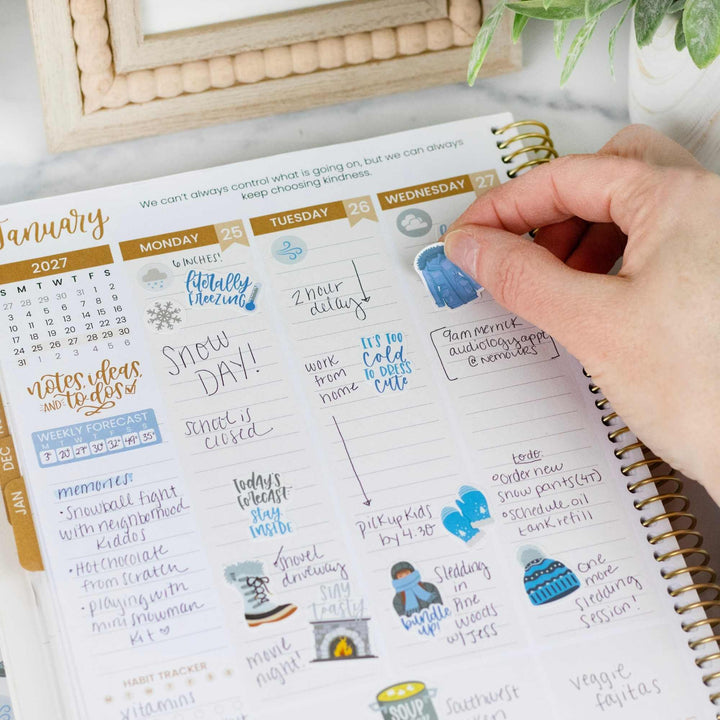 We can't always control what is going on, but we can always
keep choosing kindness.
January
2027
S M T W T F S
27 28 29 30 31 1 2
3 4 5 6 7 8 9
10 11 12 13 14 15 16
17 18 19 20 21 22 23
24 25 26 27 28 29 30
31 1 2 3 4 5 6
notes, ideas,
AND to-dos
WEEKLY FORECAST
M T W T F S S
3° 20° 27° 30° 32° 49° 35°
memories:
• Snowball fight
with neighborhood
kiddos
• Hot chocolate
from scratch
• playing with
mini snowman
kit
HABIT TRACKER
vitamins
DEC
JAN
MONDAY 25
6 INCHES!
literally
freezing
SNOW
DAY!
school is
closed
TODAY'S
FORECAST
stay
INSIDE
shovel
driveway
STAY
toasty
movie
night!
TUESDAY 26
2 hour
delay
work
from
home
IT'S TOO
cold
TO DRESS
cute
Pick up kids
by 4:30
bundle
up!
Sledding
in
Pine
Woods
w/ Jess
SOUP
Southwest
WEDNESDAY 27
9am merrick
audiology appt
@ Nemours
to do:
• Order new
snow pants (4T)
• schedule oil
tank refill
one
more
sledding
session!
veggie
fajitas